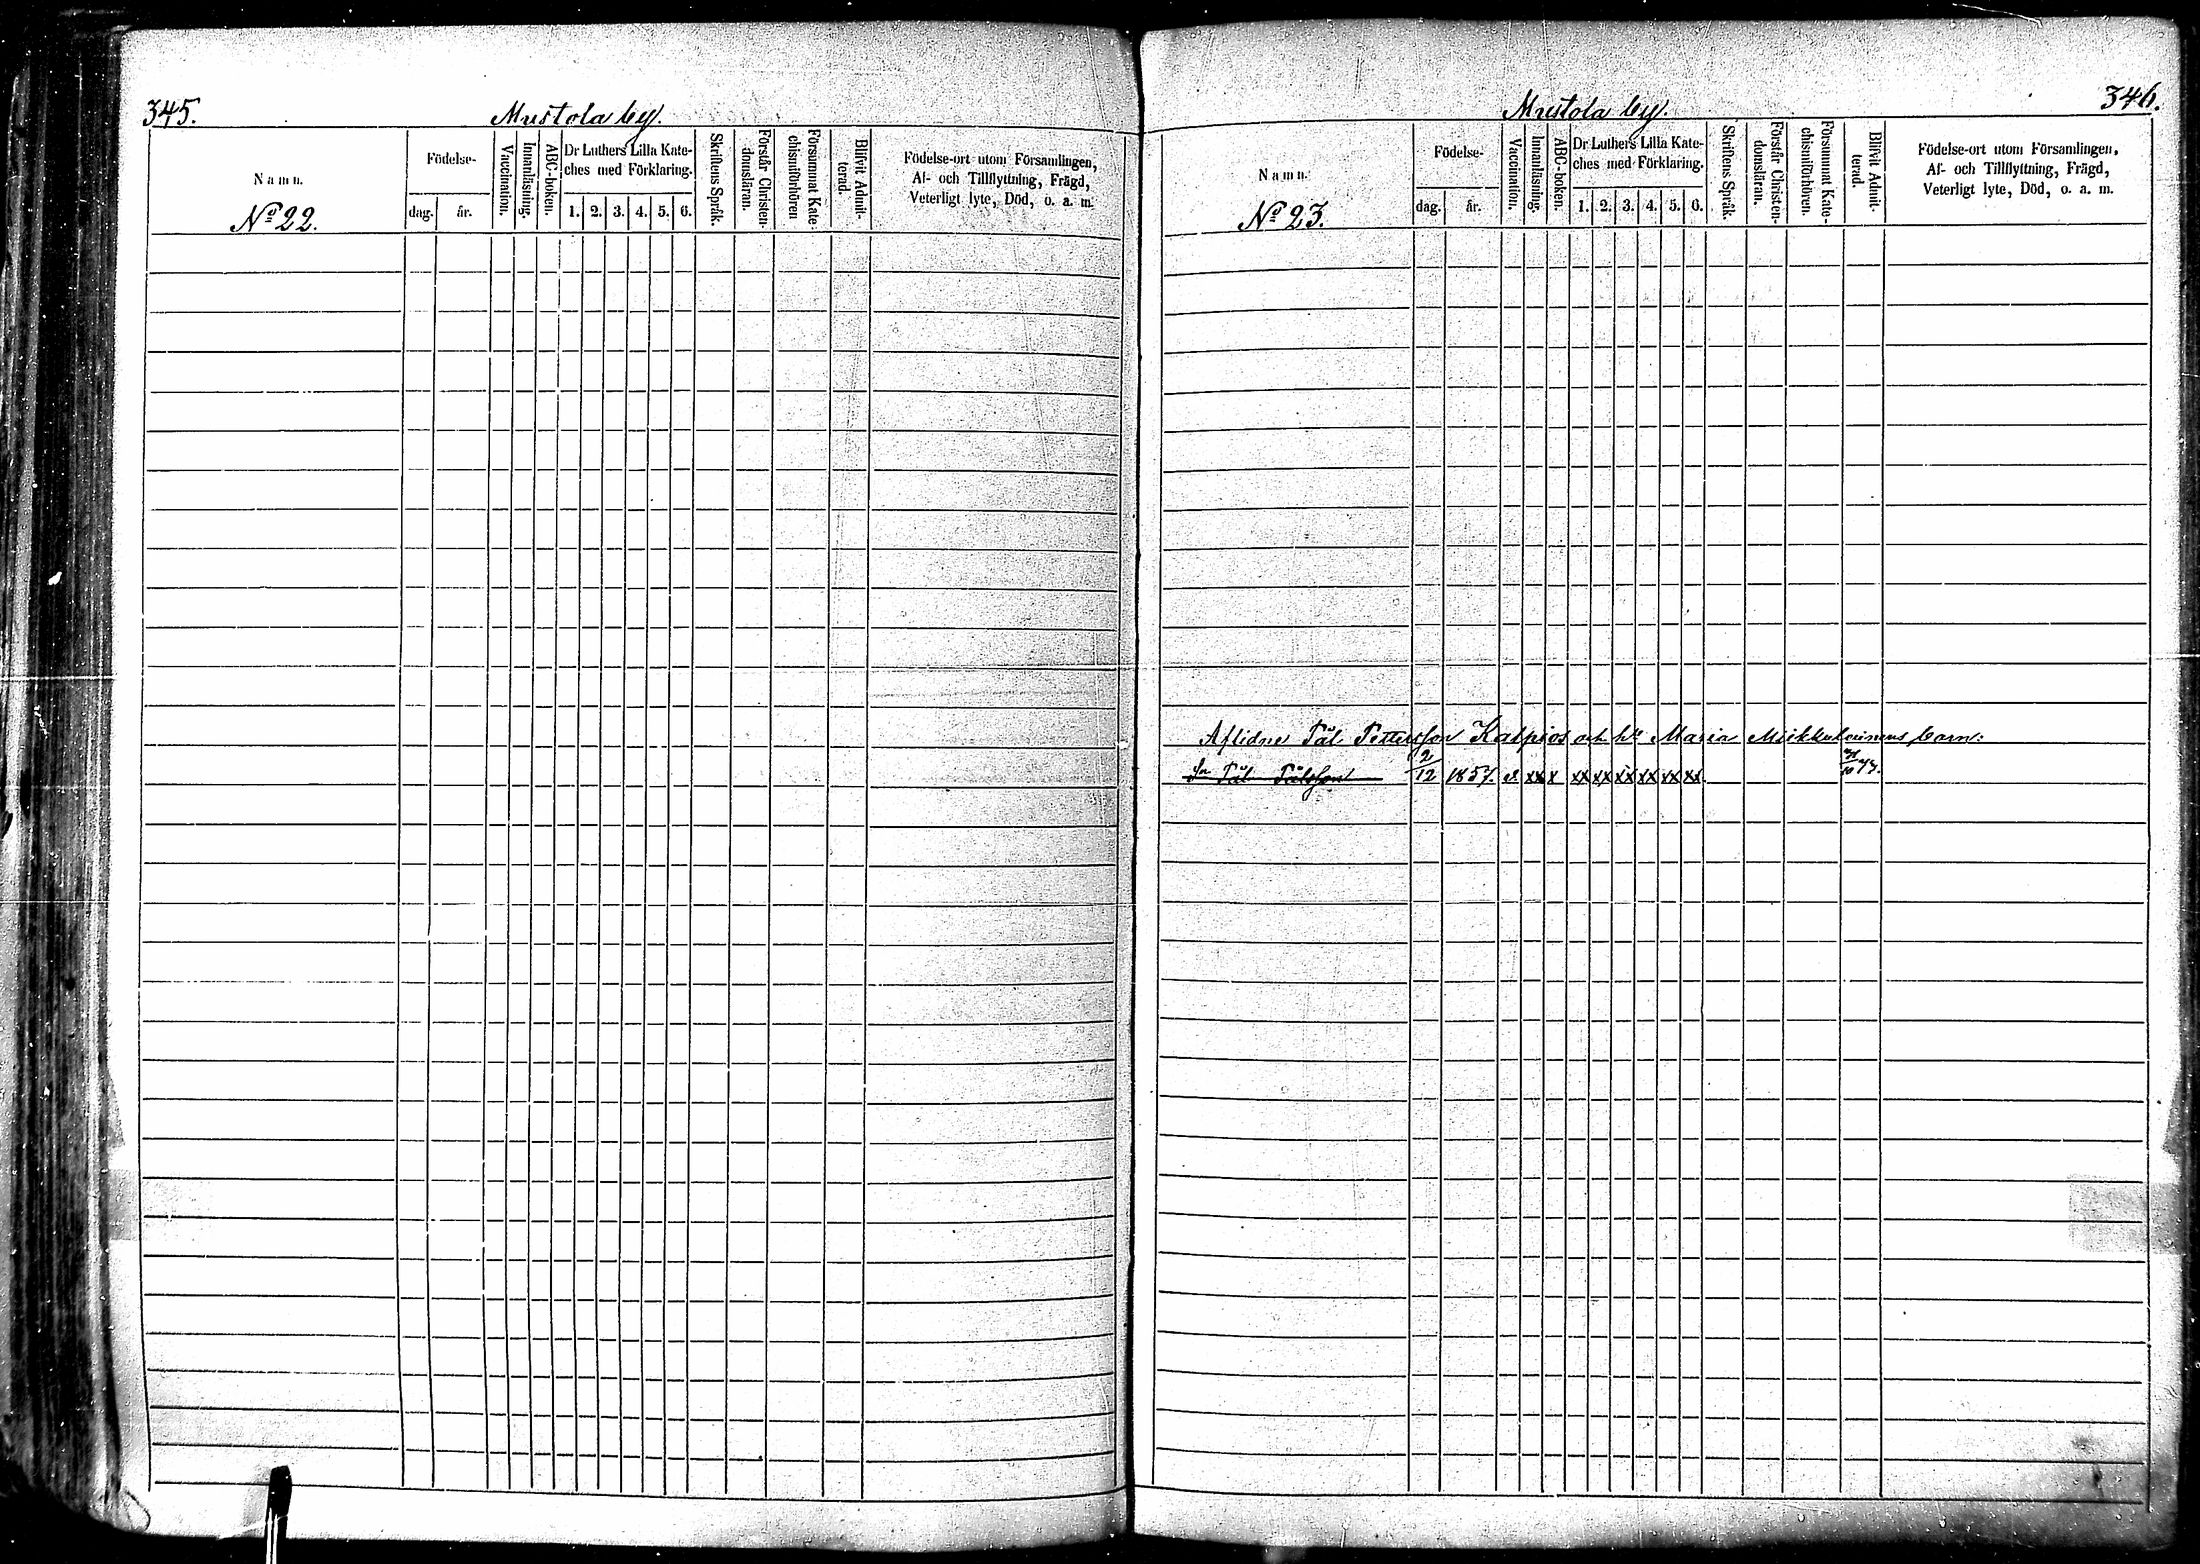 345.
Mustola by.
Namn.
Födelse-
dag.
år.
Vaccination.
Innanläsning.
ABC-boken.
Dr Luthers Lilla Kate-
ches med Förklaring.
1. 2. 3. 4. 5. 6.
Skriftens Språk.
Förstår Christen-
domsläran.
Försummat Kate-
chismiförhören
Blifvit Admit-
terad.
Födelse-ort utom Församlingen,
Af- och Tillflyttning, Frägd,
Veterligt lyte, Död, o. a. m.
No 22.
346.
Mustola by.
Namn.
Födelse-
dag.
år.
Vaccination.
Innanläsning.
ABC-boken.
Dr Luthers Lilla Kate-
ches med Förklaring.
1. 2. 3. 4. 5. 6.
Skriftens Språk.
Förstår Christen-
domsläran.
Försummat Kate-
chismiförhören.
Blifvit Admit-
terad.
Födelse-ort utom Församlingen,
Af- och Tillflyttning, Frägd,
Veterligt lyte, Död, o. a. m.
No 23.
Aflidne Pål Pettersson Kalpios och hu Maria barn:
Sn Pål Pålsson 2/12 1857. v. xx x xx xx xx xx xx xx